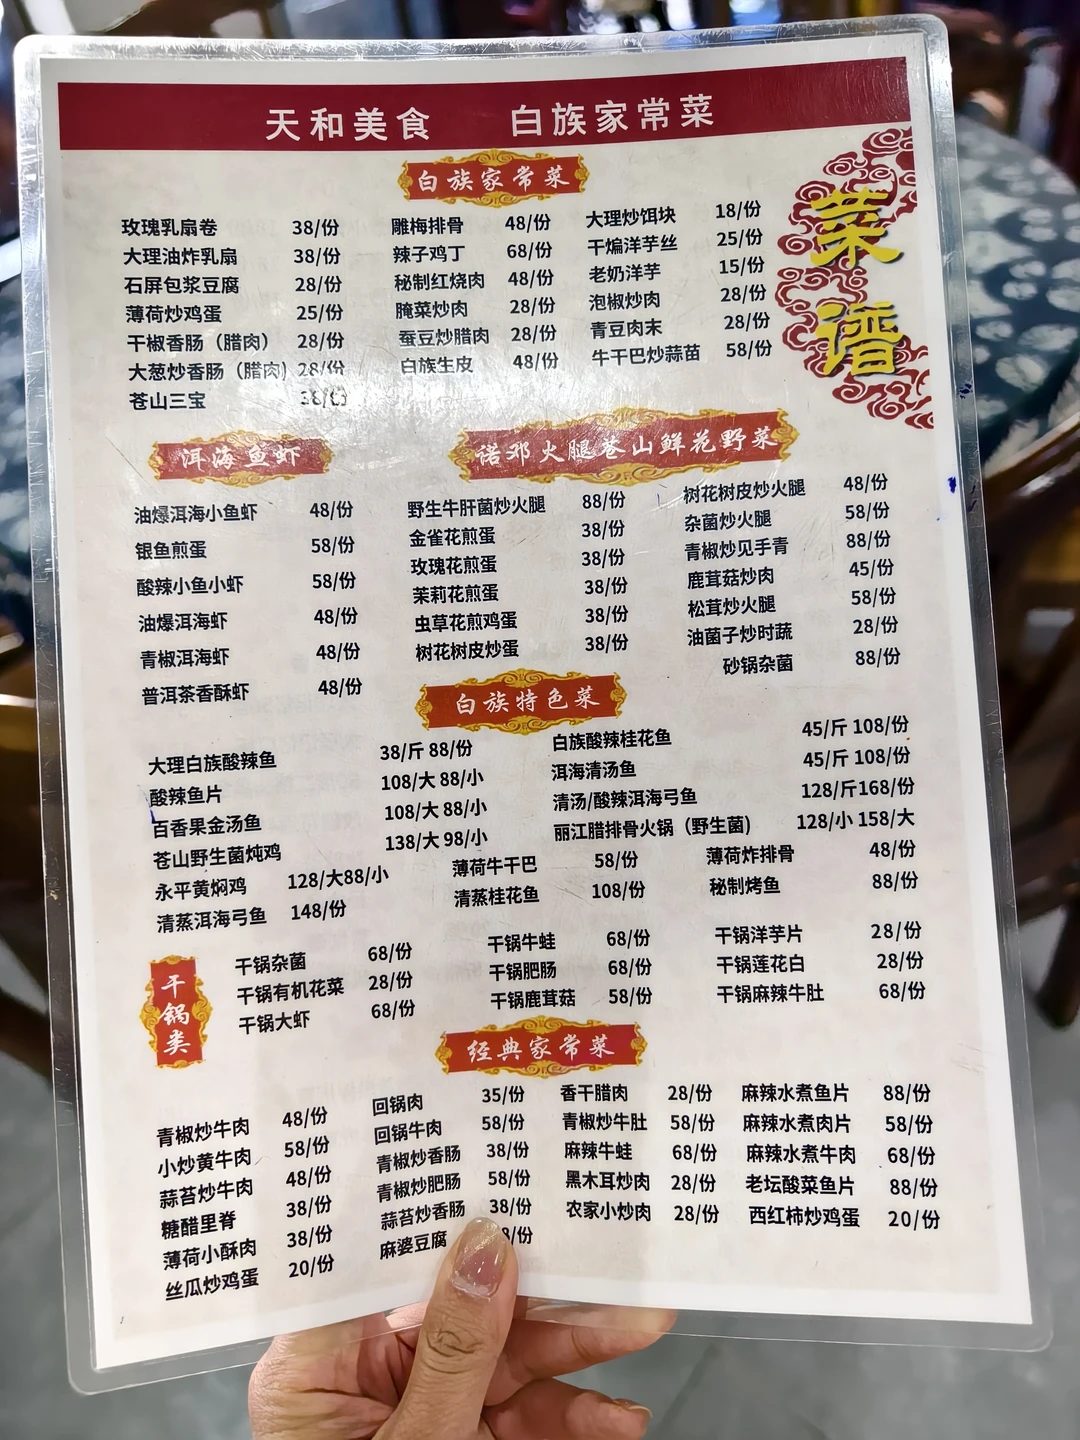 天和美食 白族家常菜
菜谱
白族家常菜
玫瑰乳扇卷 38/份
大理油炸乳扇 38/份
石屏包浆豆腐 28/份
薄荷炒鸡蛋 25/份
干椒香肠（腊肉） 28/份
大葱炒香肠（腊肉) 28/份
苍山三宝 38/份
雕梅排骨 48/份
辣子鸡丁 68/份
秘制红烧肉 48/份
腌菜炒肉 28/份
蚕豆炒腊肉 28/份
白族生皮 48/份
大理炒饵块 18/份
干煸洋芋丝 25/份
老奶洋芋 15/份
泡椒炒肉 28/份
青豆肉末 28/份
牛干巴炒蒜苗 58/份
洱海鱼虾
油爆洱海小鱼虾 48/份
银鱼煎蛋 58/份
酸辣小鱼小虾 58/份
油爆洱海虾 48/份
青椒洱海虾 48/份
普洱茶香酥虾 48/份
诺邓火腿苍山鲜花野菜
野生牛肝菌炒火腿 88/份
金雀花煎蛋 38/份
玫瑰花煎蛋 38/份
茉莉花煎蛋 38/份
虫草花煎鸡蛋 38/份
树花树皮炒蛋 38/份
树花树皮炒火腿 48/份
杂菌炒火腿 58/份
青椒炒见手青 88/份
鹿茸菇炒肉 45/份
松茸炒火腿 58/份
油菌子炒时蔬 28/份
砂锅杂菌 88/份
白族特色菜
大理白族酸辣鱼 38/斤 88/份
酸辣鱼片 108/大 88/小
百香果金汤鱼 108/大 88/小
苍山野生菌炖鸡 138/大 98/小
永平黄焖鸡 128/大88/小
清蒸洱海弓鱼 148/份
白族酸辣桂花鱼 45/斤 108/份
洱海清汤鱼 45/斤 108/份
清汤/酸辣洱海弓鱼 128/斤168/份
丽江腊排骨火锅（野生菌) 128/小 158/大
薄荷牛干巴 58/份
清蒸桂花鱼 108/份
薄荷炸排骨 48/份
秘制烤鱼 88/份
干锅类
干锅杂菌 68/份
干锅有机花菜 28/份
干锅大虾 68/份
干锅牛蛙 68/份
干锅肥肠 68/份
干锅鹿茸菇 58/份
干锅洋芋片 28/份
干锅莲花白 28/份
干锅麻辣牛肚 68/份
经典家常菜
青椒炒牛肉 48/份
小炒黄牛肉 58/份
蒜苔炒牛肉 48/份
糖醋里脊 38/份
薄荷小酥肉 38/份
丝瓜炒鸡蛋 20/份
回锅肉 35/份
回锅牛肉 58/份
青椒炒香肠 38/份
青椒炒肥肠 58/份
蒜苔炒香肠 38/份
麻婆豆腐 8/份
香干腊肉 28/份
青椒炒牛肚 58/份
麻辣牛蛙 68/份
黑木耳炒肉 28/份
农家小炒肉 28/份
麻辣水煮鱼片 88/份
麻辣水煮肉片 58/份
麻辣水煮牛肉 68/份
老坛酸菜鱼片 88/份
西红柿炒鸡蛋 20/份